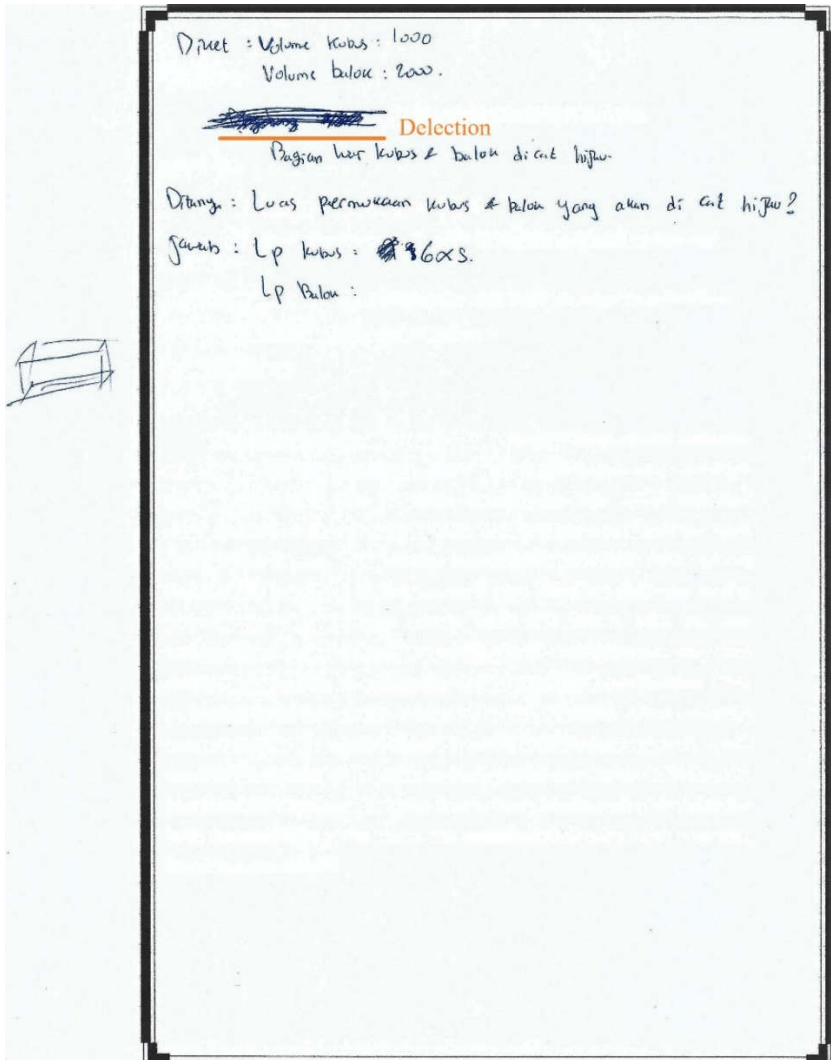 Diket : Volume kubus : 1000
Volume balok : 2000.
Delection
Bagian luar kubus & balok di cat hijau.
Ditany. : Luas permukaan kubus & balok yang akan di cat hijau?
Jawab : Lp kubus : 6×s.
Lp Balok :